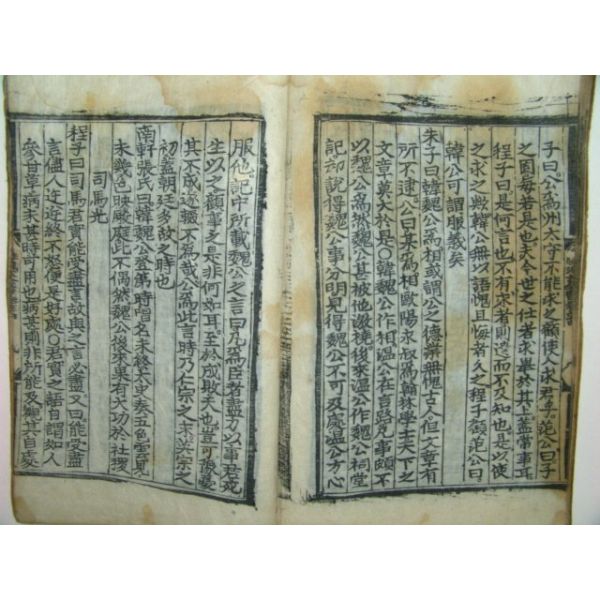 子曰公爲州太守不能求之顧使人求君乎范公曰子
之固每若是也夫今世之仕者求舉於其上蓋常事耳
程子曰是何言也不有求者則遺而不及知也是以使
之求之歟韓公無以語愧且悔者久之程子顧范公曰
韓公可謂服義矣
朱子曰韓魏公爲相或謂公之德業無愧古人但文章有
所不逮公曰某爲相歐陽永叔爲翰林學士天下之
文章莫大於是○韓魏公作相溫公在言路凡事頗不
以魏公爲然魏公甚被他激撓後來溫公作魏公祠堂
記却說得魏公事分明見得魏公不可及處溫公方心
服他記中所載魏公之言曰凡爲臣者盡力以事君死
生以之顧事之是非何如耳至於成敗天也豈可豫憂
其不成遂輟不爲哉公爲此言時乃仁宗之末英宗之
初蓋朝廷多故之時也
南軒張氏曰韓魏公登第時唱名未終太史奏五色雲見
未幾色映殿庭此不偶然魏公後來果有大功於社稷
司馬光
程子曰司馬君實能受盡言故與之言必盡又曰能受盡
言儘人忤逆終不怒便是好處○君實之語自謂如人
參甘草病未甚時可用也病甚則非所能及觀其自處